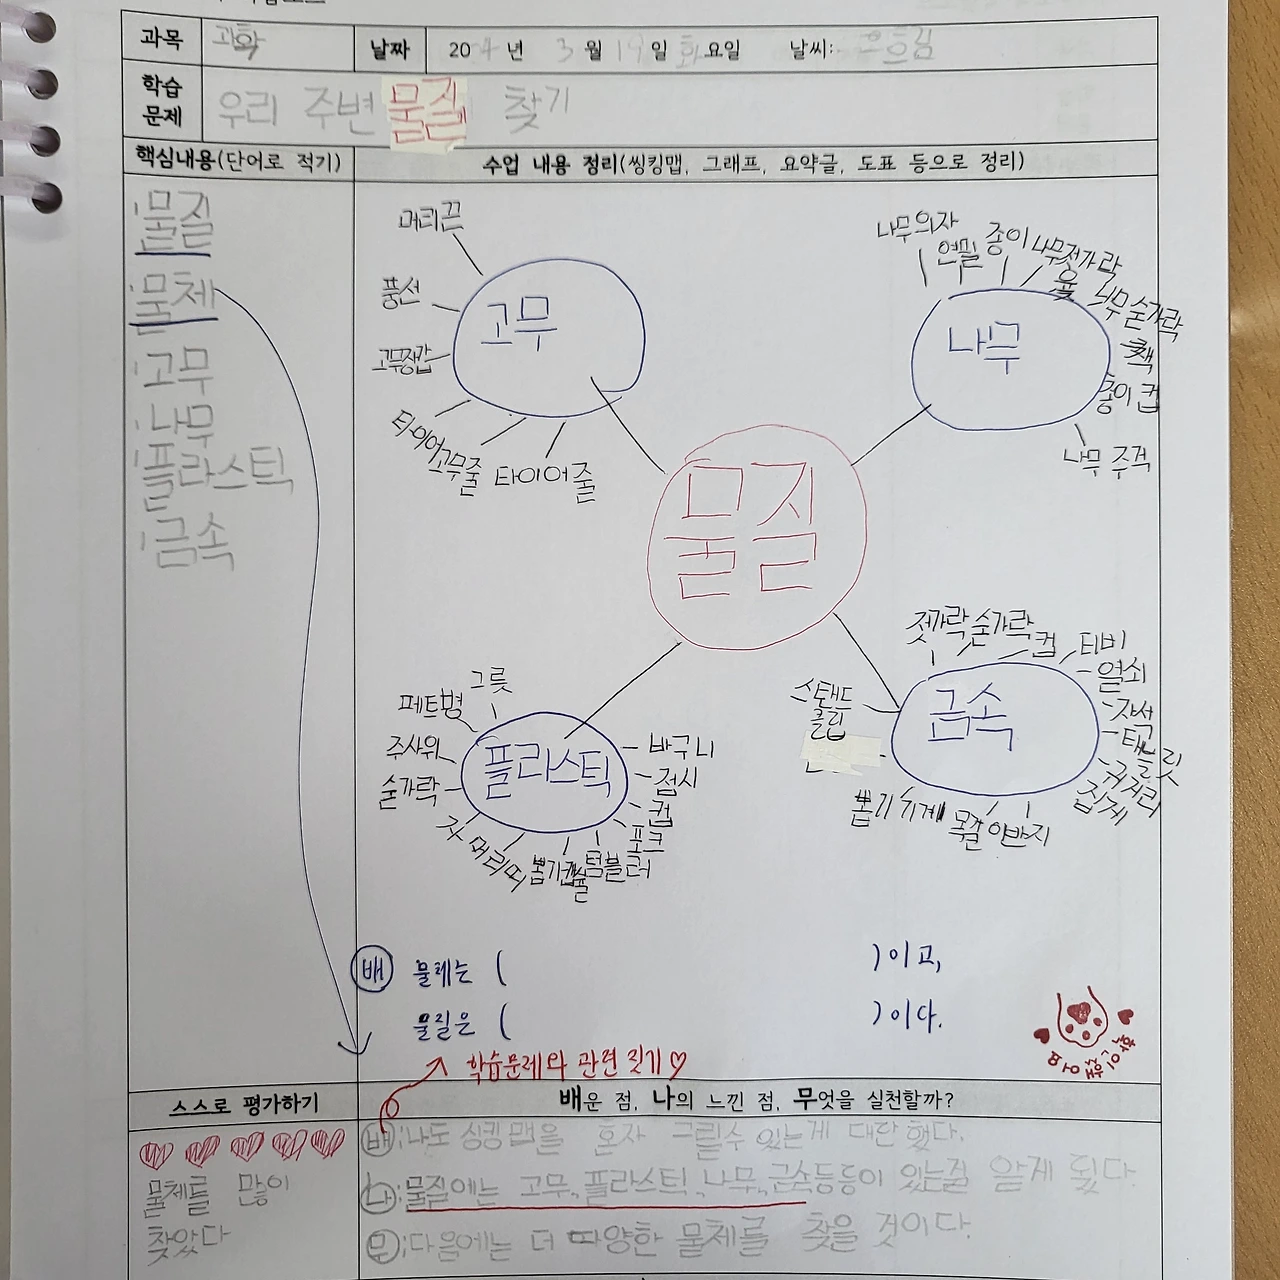 과목 과학 날짜 20 년 3 월 19 일 화 요일 날씨:
학습 문제 우리 주변 물질 찾기
핵심내용(단어로 적기) 수업 내용 정리(씽킹맵, 그래프, 요약글, 도표 등으로 정리)
물질
물체
고무
나무
플라스틱
금속
물질
고무
머리끈
풍선
고무장갑
타이어
고무줄
타이어 줄
나무
나무의자
연필
종이
나무젓가락
윷
나무 숟가락
책
종이 컵
나무 주걱
플라스틱
그릇
페트병
주사위
숟가락
자
머리띠
뽑기캡슐
텀블러
포크
컵
접시
바구니
금속
젓가락
숟가락
컵
티비
열쇠
자석
태블릿
귀걸이
집게
반지
목걸이
뽑기 기계
스탠드
클립
배 물체는 ( )이고,
물질은 ( )이다.
학습문제와 관련 짓기♡
확인했어요
스스로 평가하기 배운 점, 나의 느낀 점, 무엇을 실천할까?
물체를 많이
찾았다
배:나도 싱킹맵을 혼자 그릴수 있는게 대단했다.
나:물질에는 고무, 플라스틱, 나무, 금속등등이 있는걸 알게 됬다.
무:다음에는 더 다양한 물체를 찾을 것이다.